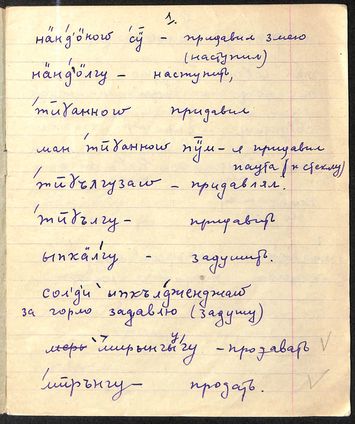 1.
нӓнд'ӧкоɯ сӱ̄ – придавил змею
(наступил)
нӓнд'ӧлгу – наступить,
'тӣɣанноɯ придавил
ман 'тӣɣанноɯ пӱ̄м – я придавил
паута (к стеклу)
'тӣɣългузаɯ – придавлял.
'тӣɣългу – придавить
ыпкӓлгу – задушить.
сол'ди ыпкъл'дженджаɯ
за горло задавлю (задушу)
мирынгы'гу – продавать
'мӣрънгу – продать.